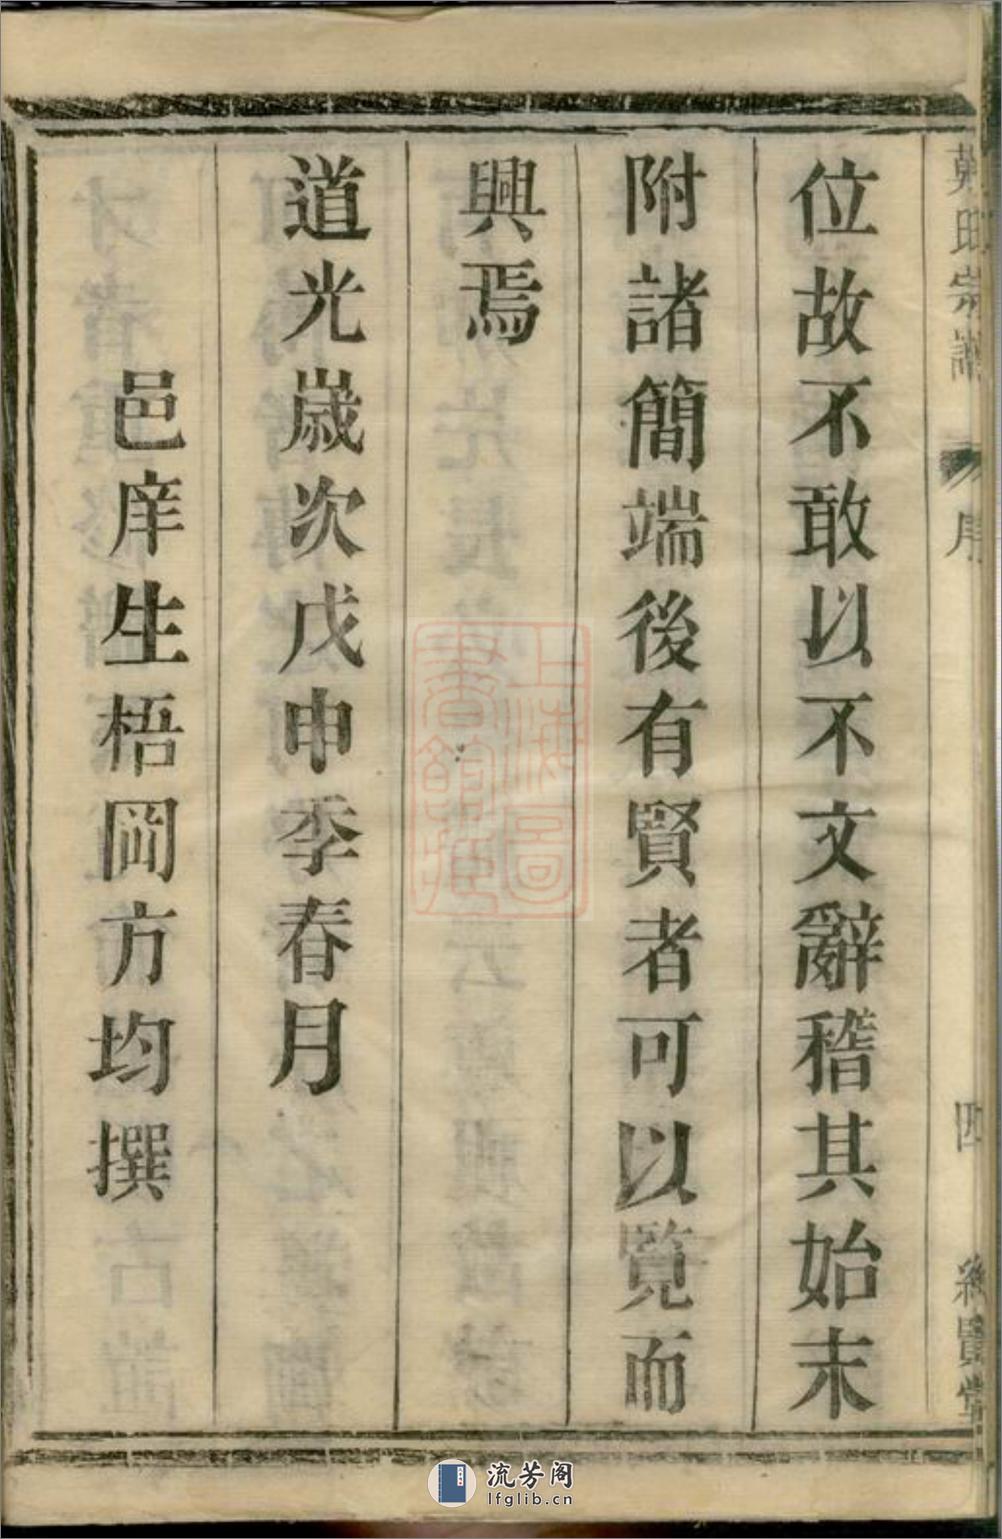 位故不敢以不文辭稽其始末
附諸簡端後有賢者可以覽而
興焉
道光歲次戊申季春月
邑庠生梧岡方均撰
序
四
上海圖書館藏
流芳阁
lfglib.cn